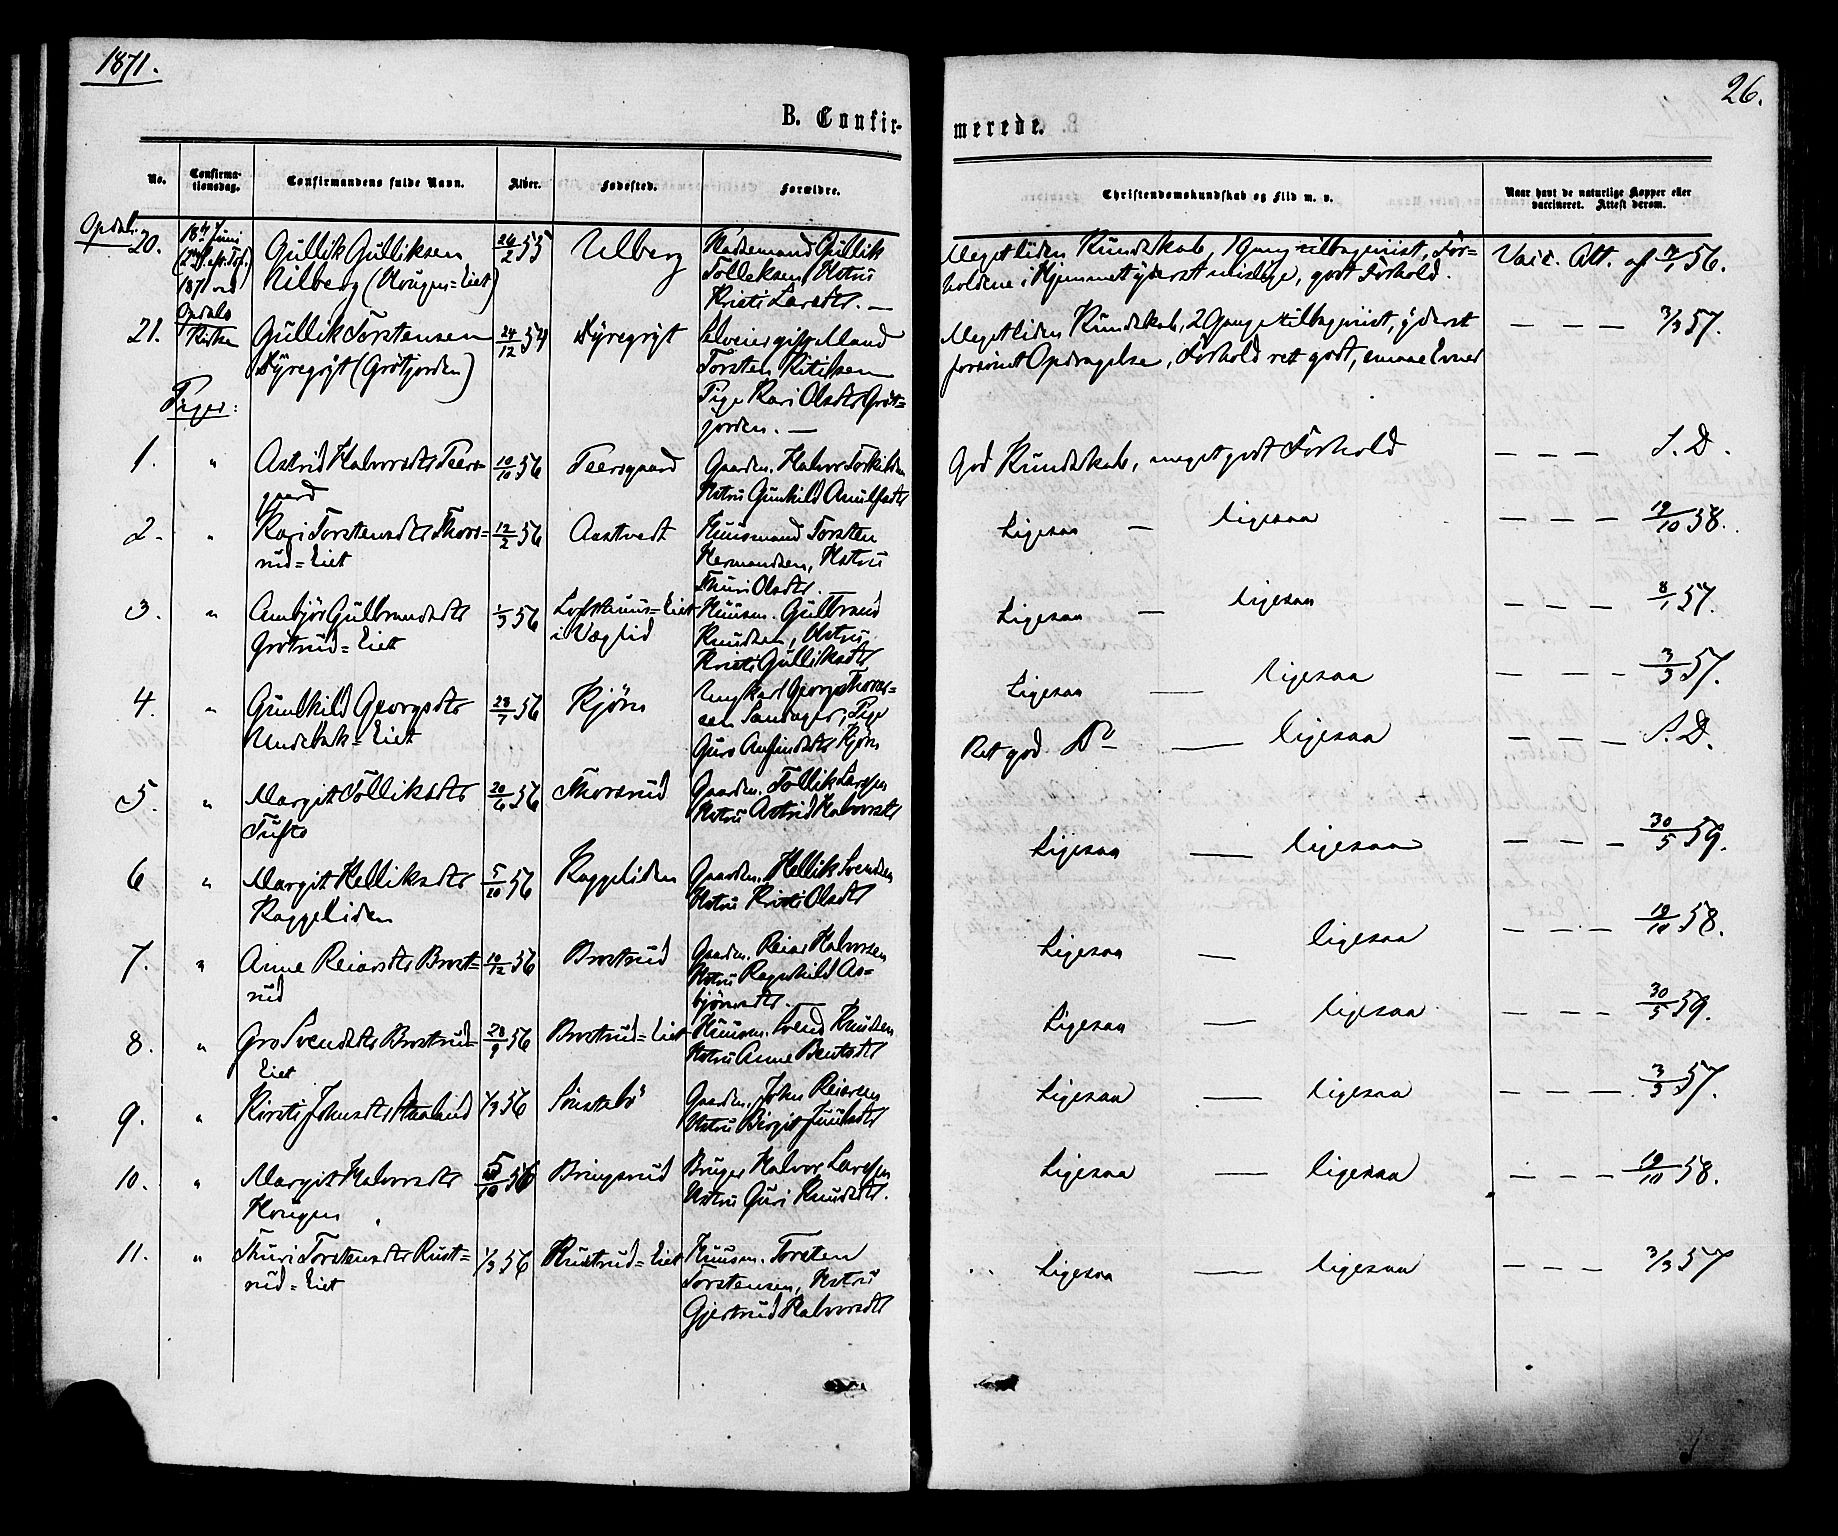 1871.
26.
B. Confir-
merede.
No.
Confirma-
tionsdag.
Confirmandens fulde Navn.
Alder.
Fødested.
Forældre.
Christendomskundskab og Flid m. v.
Naar havt de naturlige Kopper eller
vaccineret. Attest derom.
Opdal:
20.
18de Juni
1871 ved
Opdals
Kirke
Gullik Gulliksen
Ulberg (Hougen=Eiet)
26/2 55
Ulberg
Gullik
Tolleksen, Hstru
Kristi Larsdtr. —
Meget liden Kundskab, 1 Gang tilbageviist, For-
holdene i Hjemmet yderst mislige, godt Forhold.
Vacc. Att. af 56.
21.
Gullik Torstensen
Dyregrøt (Grøtjorden)
24/12 54
Dyregrøt
Torsten Kittilsen
Pige Kari Olsdtr Grøt=
jorden. —
Meget liden Kundskab, 2 Gange tilbageviist, yderst
forsømt Opdragelse, Forhold ret godt, smaae Evner
— — — 3/3 57.
Piger:
1.
"
Astrid Halvorsdtr Teers-
gaard
10/10 56
Teersgaard
Gaardm. Halvor Torkildsen
Hstru Gunhild Arnulfsdtr
God Kundskab, meget godt Forhold
— — — S. D.
2.
"
Kari Torstensdtr Thors-
rud=Eiet
12/2 56
Aastvedt
Huusmand Torsten
Hermandsen, Hstru
Thuri Olsdtr. —
Ligesaa — ligesaa
— — — 19/10 58.
3.
"
Ambjør Gulbrandsdtr
Grøtrud=Eiet
1/3 56
Lofthuus=Eiet
i Væglid
Huusm. Gulbrand
Knudsen, Hstru
Kristi Gulliksdtr
Ligesaa — ligesaa
— — — 8/1 57.
4.
"
Gunhild Georgsdtr
Undebak=Eiet
28/7 56
Kjøns
Ungkarl Georg Thores-
sen Sandager, Pige
Guro Anfindsdtr Kjøns
Ligesaa — ligesaa
— — — 3/3 57.
5.
"
Margit Tolliksdtr
Tufto
20/6 56
Thorsrud
Gaardm. Tollik Larssen
Hstru Astrid Halvorsdtr
Ret god Do — ligesaa
— — — S. D.
6
"
Margit Helliksdtr
Raggeliden
5/10 56
Raggeliden
Gaardm. Hellik Svendsen
Hstru Kristi Olsdtr
Ligesaa — ligesaa
— — — 30/5 59.
7.
"
Anne Reiarsdtr Brost=
rud
10/12 56
Brostrud
Gaardm. Reiar Halvorsen
Hstru Ragnhild As-
bjørnsdtr. —
Ligesaa — ligesaa
— — — 19/10 58.
8.
"
Gro Svendsdtr Brostrud=
Eiet
28/9 56
Brostrud=Eiet
Huusm. Svend Knudsen
Hstru Anne Bentsdtr
Ligesaa — ligesaa
— — — 30/5 59.
9.
"
Kirsti Johnsdtr Aaslund
1/3 56
Sønstebø
Gaardm. John Reiersen
Hstru Birgit Juulsdtr
Ligesaa — ligesaa
— — — 3/3 57.
10.
"
Margit Halvorsdtr
Hougen
5/10 56
Bringsrud
Bruger Halvor Larssen
Hstru Guri Knudsdtr.
Ligesaa — ligesaa
— — — 19/10 58.
11.
"
Thuri Torstensdtr Rust=
rud=Eiet
1/3 56
Rustrud=Eiet
Huusm. Torsten
Torstensen, Hstru
Gjertrud Halvorsdtr
Ligesaa — ligesaa
— — — 3/3 57